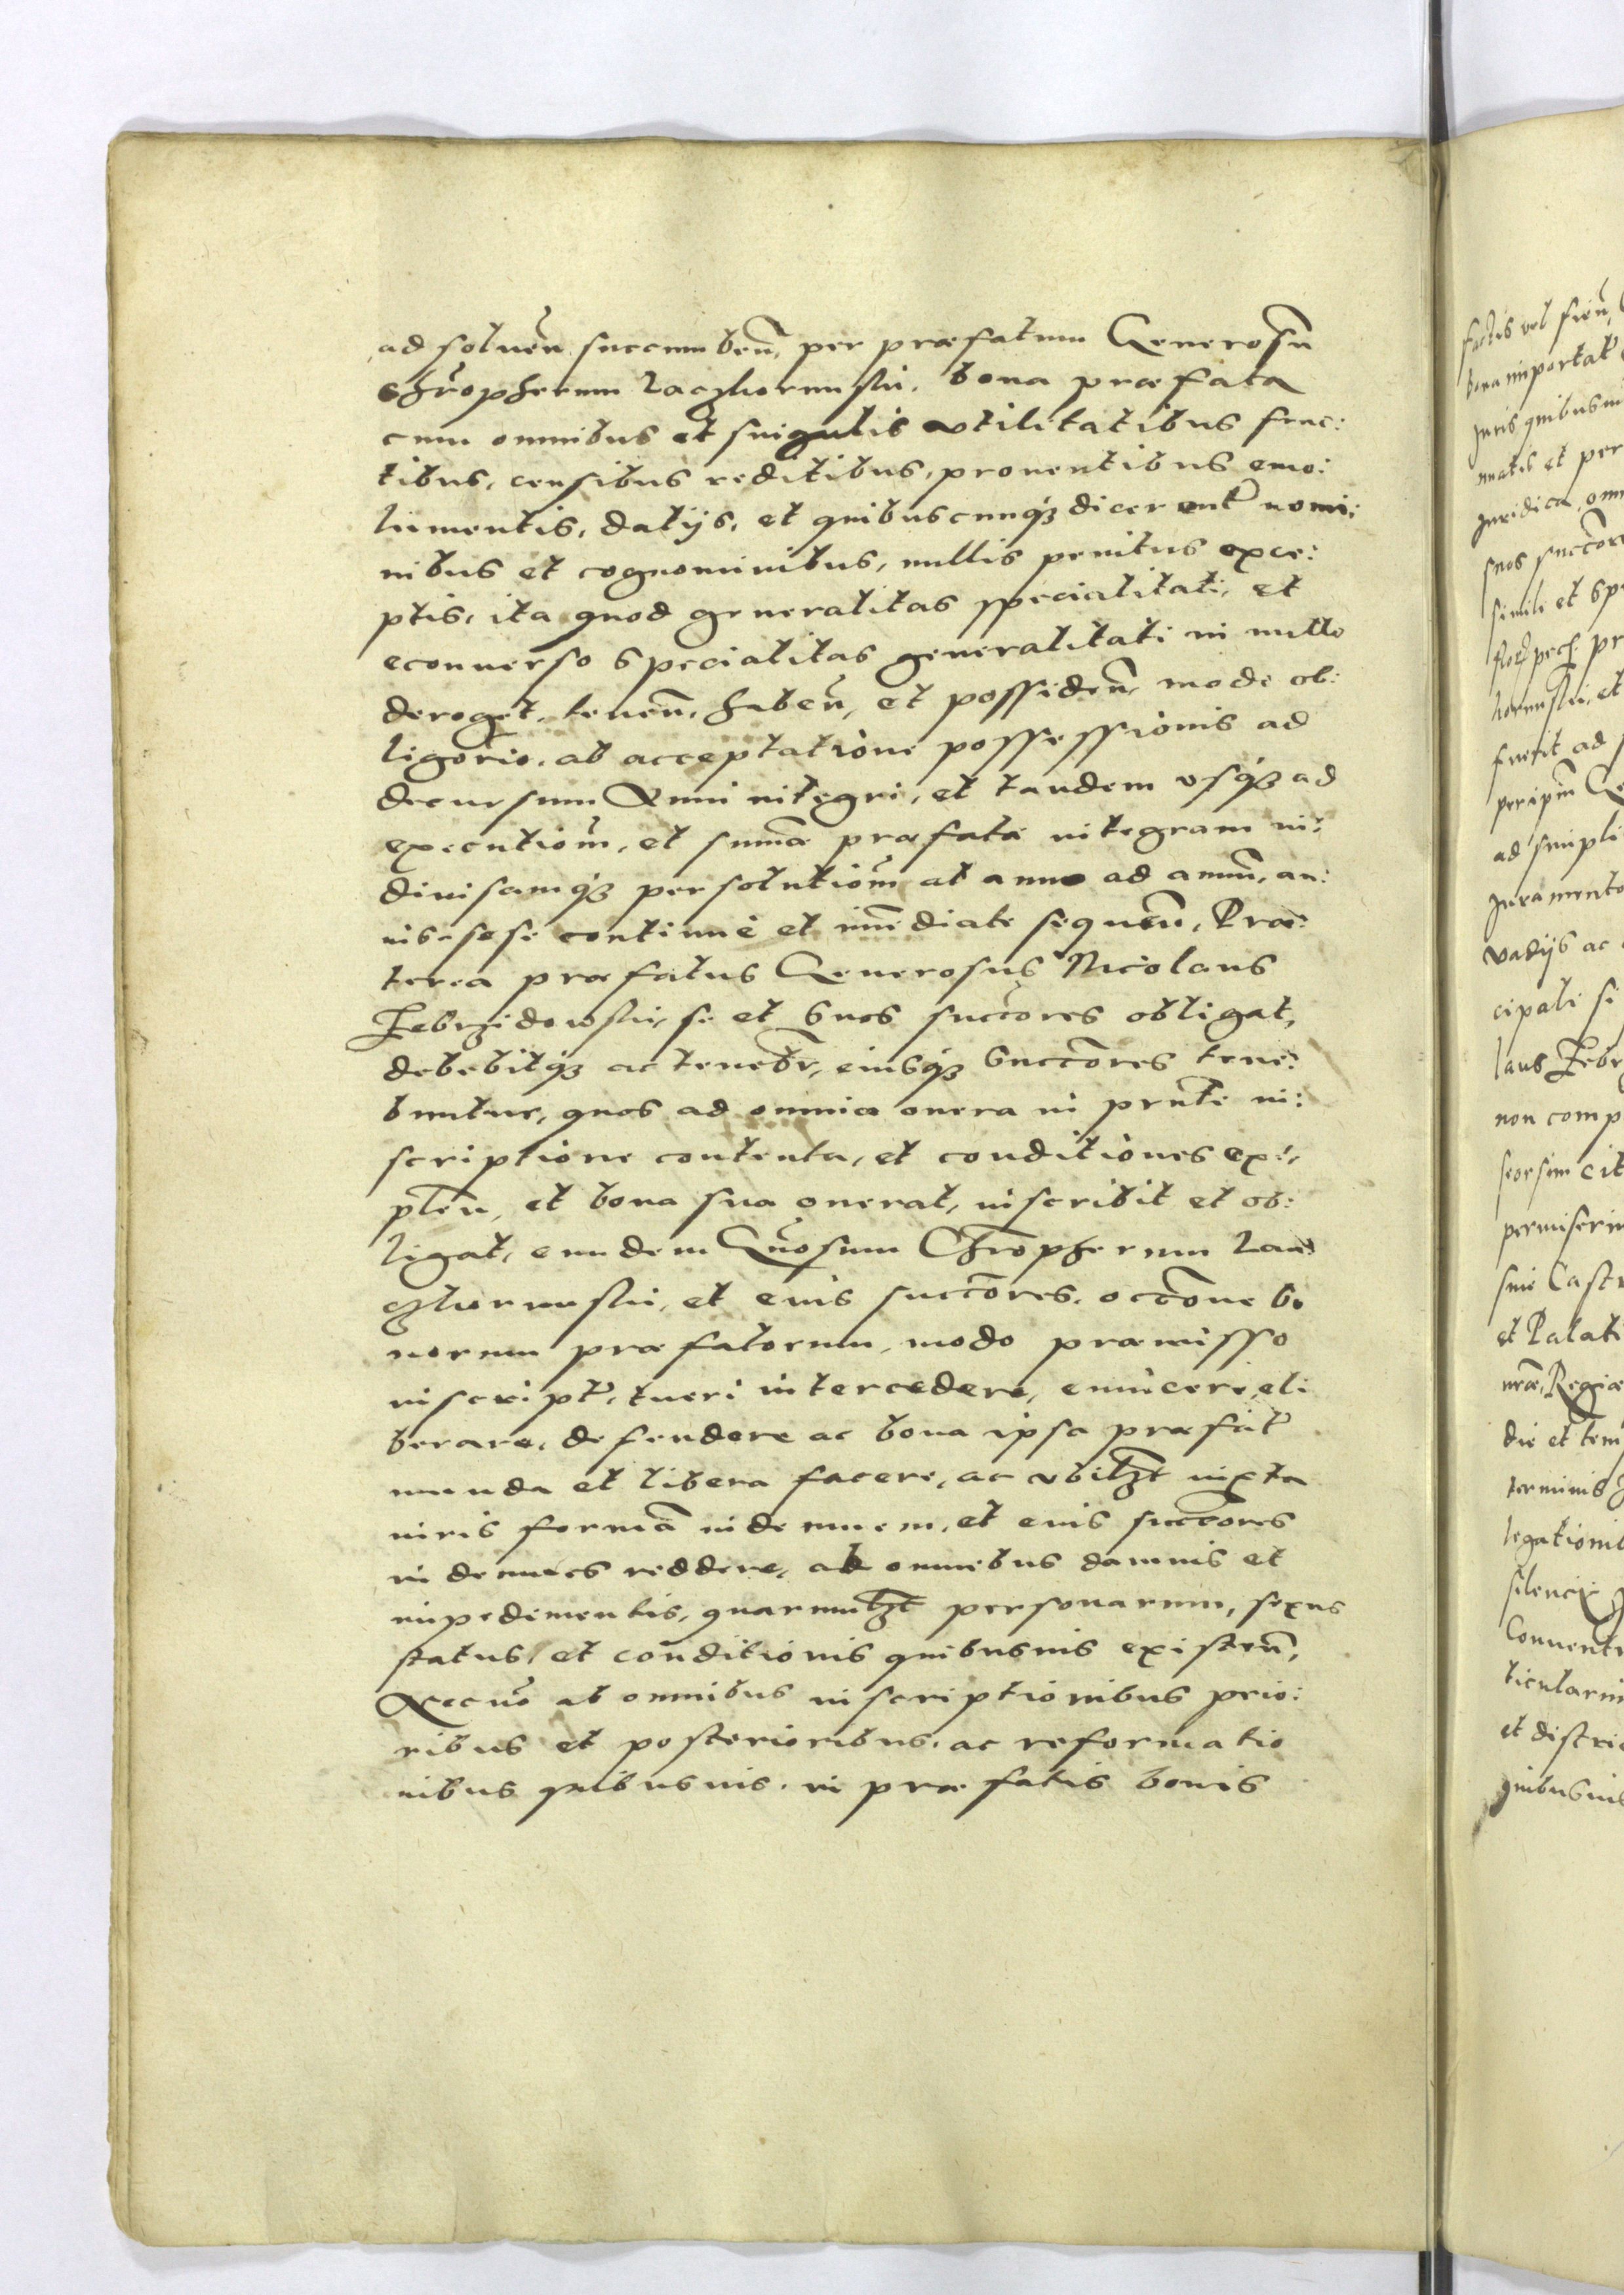 ad soluen̄ succumben̄, per præfatum Generosū
Chr̄opherum Laczhormskii. bona præfata
cum omnibus et singulis vtilitatibus fruc:
tibus, censibus reditibus, prouentibus emo:
lumentis, datijs, et quibuscunqȝ dicerent̄ nomi:
nibus et cognominibus, nullis penitus exce:
ptis, ita quod generalitas specialitati, et
econuerso specialitas generalitati in nullo
deroget, tenen̄, haben̄, et possiden̄, mode ob:
ligorio. ab acceptatione possessionis ad
decursum Anni integri, et tandem vsqȝ ad
executiom̄, et summæ præfatæ integram in:
diuisamqȝ persolutiom̄ ab anno ad annū, an:
nis sese continué et im̄ediate sequen̄, Præ:
terea præfatus Generosus Nicolaus
Zebrzidowskii, se et suos succ̄ores obligat,
debebitqȝ ac teneb̄r, eiusqȝ succ̄ores tene:
buntur, quos ad omnia onera in prn̄te in:
scriptione contenta, et conditiones ex:
plen̄, et bona sua onerat, inscribit et ob:
ligat, eundem Gn̄osum Chr̄opherum Lan:
czhormskii, et eius succ̄ores. occ̄one bo
norum præfatorum, modo præmisso
inscript̄, tueri intercedere, euincere, eli
berare, defendere ac bona ipsa præfat̄
munda et libera facere, ac vbilȝt iuxta
iuris formā indemnem, et eius succ̄ores
indemnes reddere, ab omnebus damnis et
impedementis, quarumlȝt personarum, sexus
status, et conditionis quibusuis existen̄,
Necn̄o ab omnibus inscriptionibus prio:
ribus et posterioribus. ac reformatio
nibus quibusuis. in præfatis bonis
factis vel fien̄,
bona importat̄
juris quibusui
matis et per
juridica, omn
suos succ̄or
simili et spe
hormskii, et
fuerit ad
per ipm̄ Ge
ad simpli
juramento
vadijs ac
cipali si
laus Zebr
non comp
seorsim cit
permiserin
siue Castr
et Palati
nræ, Regiæ
die et tem
terminis
legationib
silencij
Conuent
ticularin
et distric
quibusuis